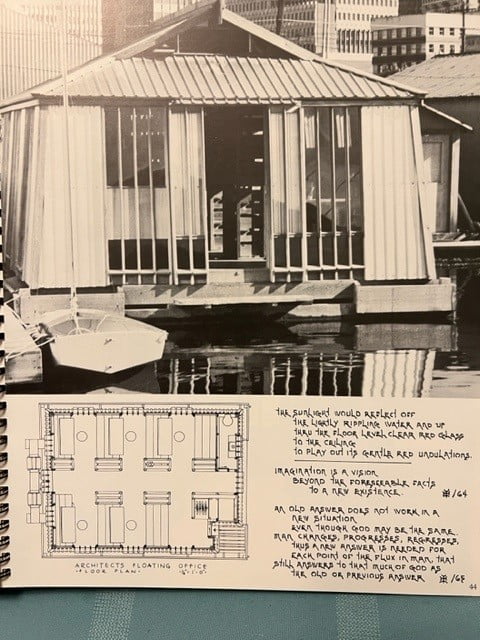 THE SUNLIGHT WOULD REFLECT OFF
THE LIGHTLY RIPPLING WATER AND UP
THRU THE FLOOR LEVEL CLEAR RED GLASS
TO THE CEILING
TO PLAY OUT ITS GENTLE RED UNDULATIONS.
IMAGINATION IS A VISION
BEYOND THE FORESEEABLE FACTS
TO A NEW EXISTENCE. /64
AN OLD ANSWER DOES NOT WORK IN A
NEW SITUATION
EVEN THOUGH GOD MAY BE THE SAME,
MAN CHANGES, PROGRESSES, REGRESSES,
THUS A NEW ANSWER IS NEEDED FOR
EACH POINT OF THE FLUX IN MAN, THAT
STILL ANSWERS TO THAT MUCH OF GOD AS
THE OLD OR PREVIOUS ANSWER
ARCHITECTS FLOATING OFFICE
FLOOR PLAN
44